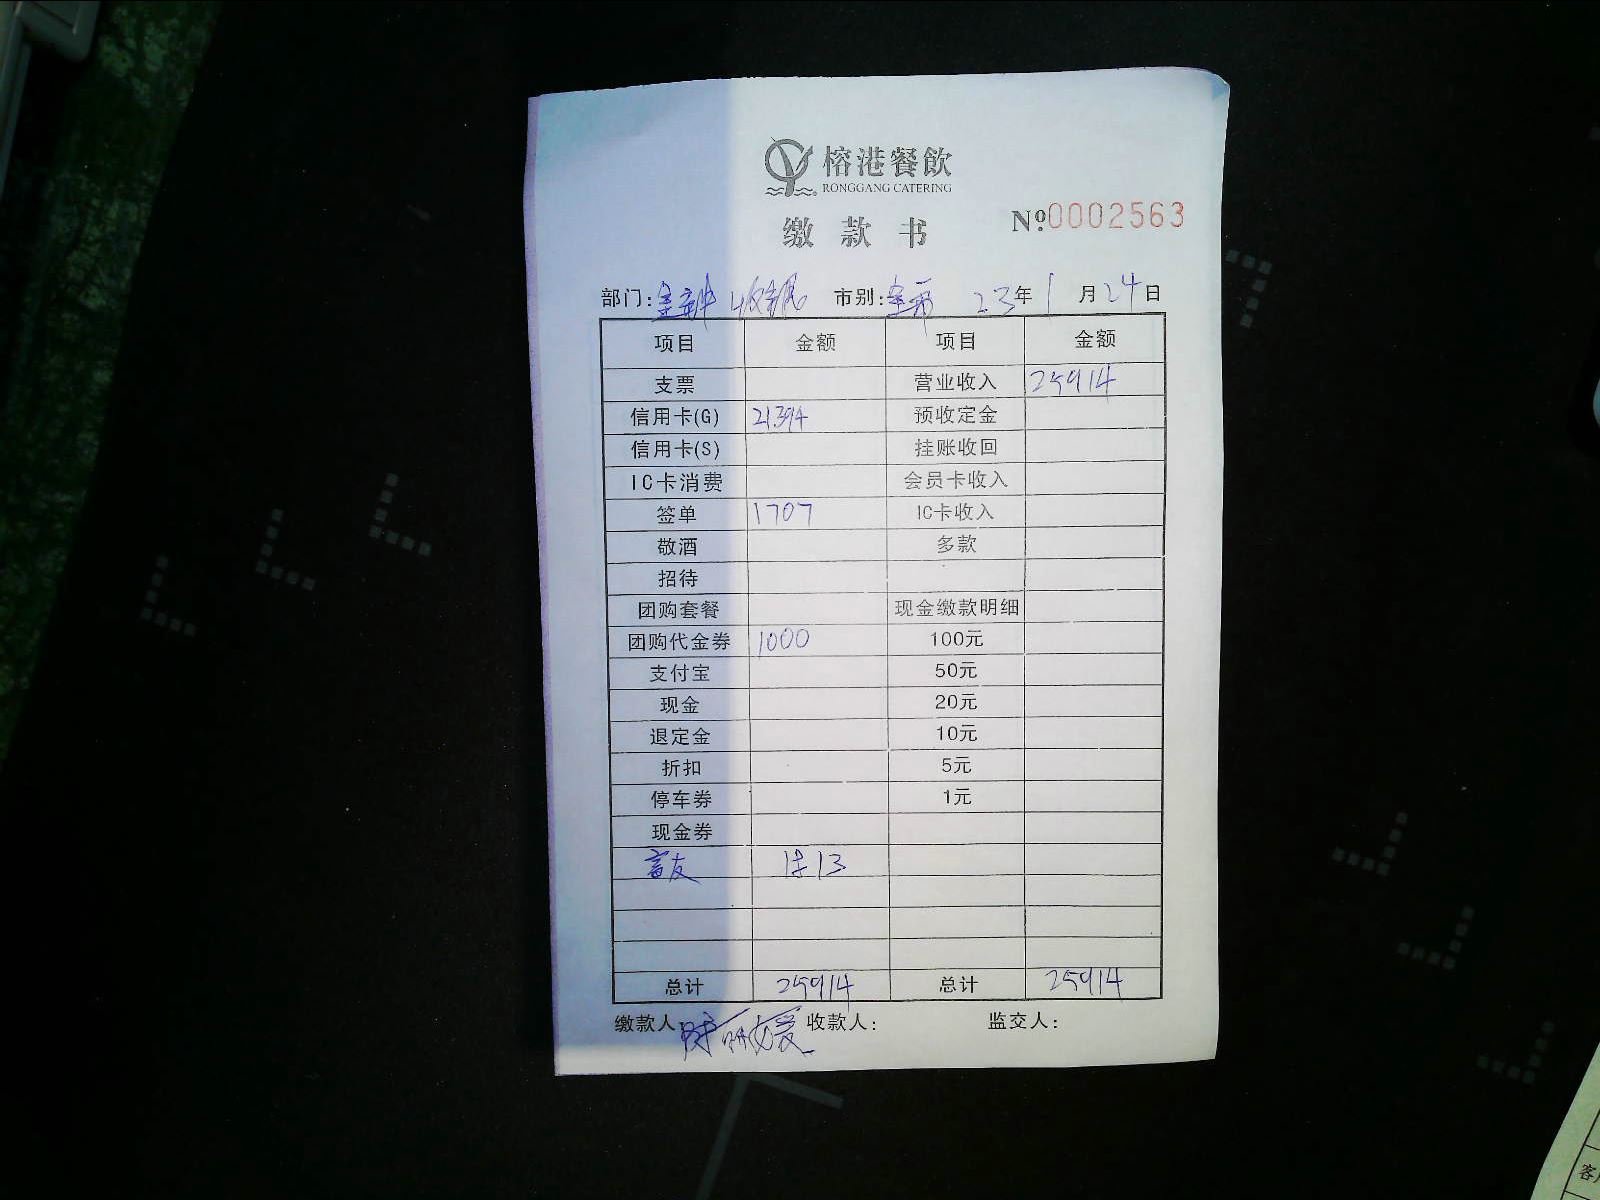 榕港餐飲
RONGGANG CATERING
缴款书
№0002563
部门: 市别: 23年1月24日
项目 金额 项目 金额
支票 营业收入 25914
信用卡(G) 21394 预收定金
信用卡(S) 挂账收回
IC卡消费 会员卡收入
签单 1707 IC卡收入
敬酒 多款
招待
团购套餐 现金缴款明细
团购代金券 1000 100元
支付宝 50元
现金 20元
退定金 10元
折扣 5元
停车券 1元
现金券
总计 25914 总计 25914
缴款人: 收款人: 监交人: